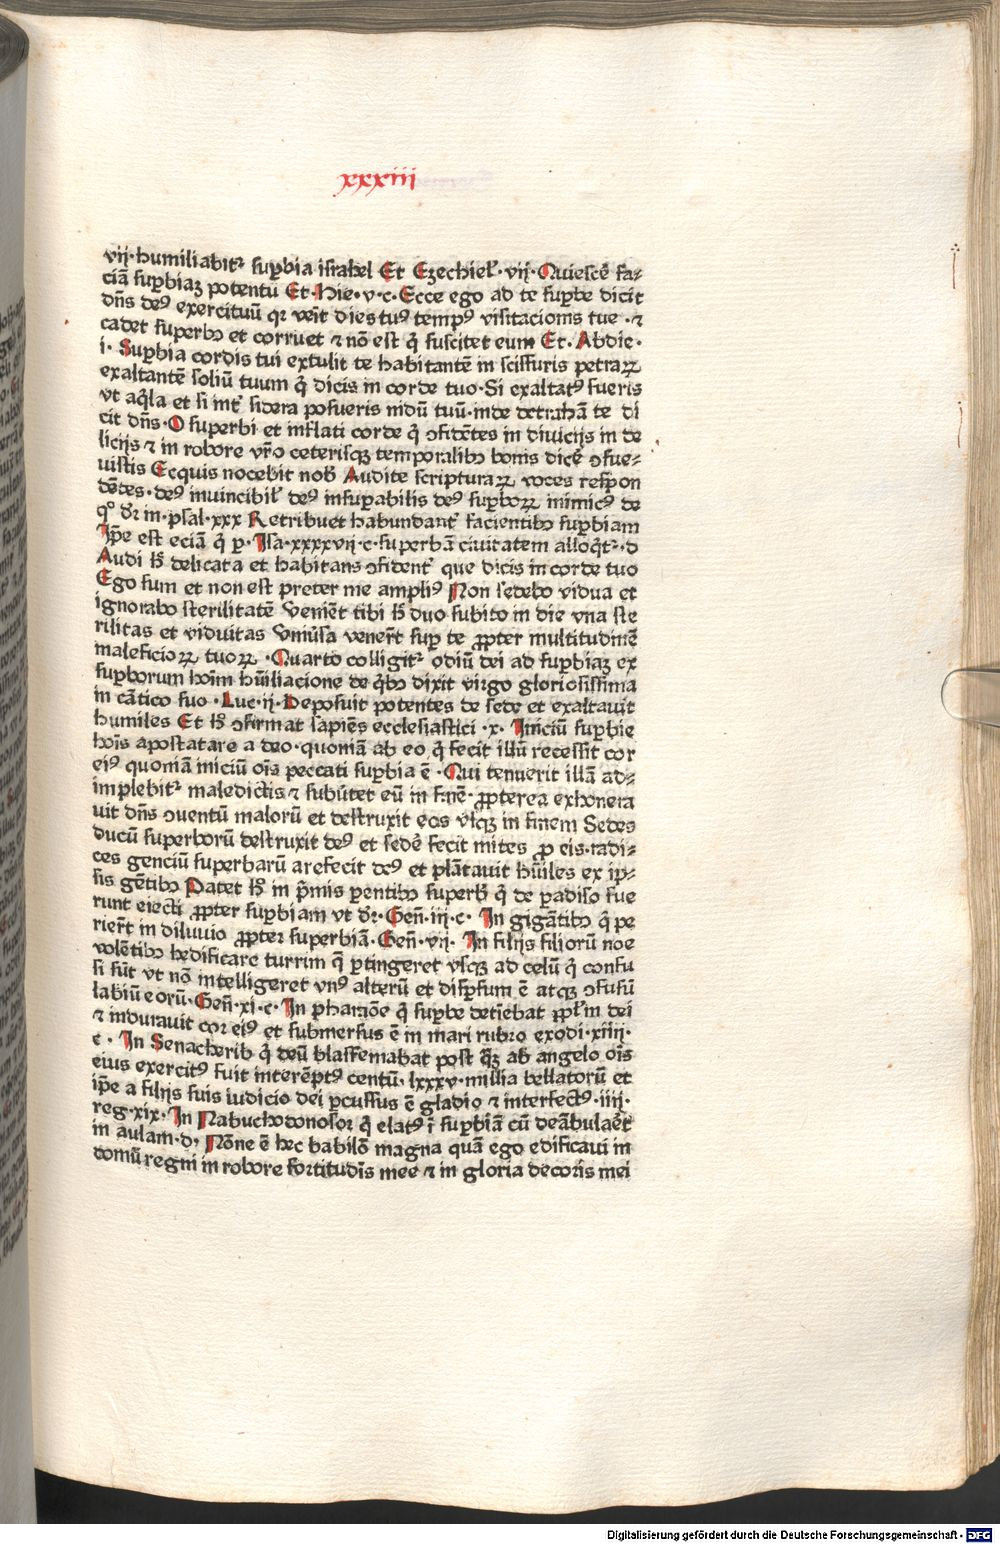 xxxiii
vij·humiliabitᷣ sup̱bia israhel Et Ezechielˀ·vij·Quiescē̄ fa⸗
ciā sup̱biaꝫ potentū Et·Hie·v·c·Ecce ego ad te sup̱be dicit
dn̄s deꝰ exercituū qꝛ veīt dies tuꝰ tempꝰ visitacionis tue·⁊
cadet superbꝰ et corruet ⁊ nō est q̇ suscitet eum Et·Abdie·
i·Sup̱bia cordis tui extulit te habitantē in scissuris petraꝝ
exaltantē soliū tuum q̇ dicis in corde tuo·Si exaltatꝰ fueris
vt aq̇la et si int̉ sidera posueris nidū tuū·inde detrahā te di
cit dn̄s·O superbi et inflati corde q̇ ꝯfidētes in diuicijs in de
licijs ⁊ in robore vr̄o ceterisqꝫ temporalibꝰ bonis dicē ꝯsue⸗
uistis Ecquis nocebit nob̄ Audite scripturaꝝ voces respon
dētes·deꝰ inuincibilˀ deꝰ insup̱abilis deꝰ sup̱boꝝ inimicꝰ de
qͦ dr̄ in·psal·xxx Retribuet habundant̉ facientibꝰ sup̱biam
Ip̄e est eciā q̇ ꝑ·Isa·xxxxvij·c·superbā ciuitatem alloq̇tᷣ·d
Audi h̄ delicata et habitans ꝯfident̉ que dicis in corde tuo
Ego sum et non est preter me ampliꝰ Non sedebo vidua et
ignorabo sterilitatē Veniēt tibi h̄ duo subito in die vna ste
rilitas et viduitas Vniūsa venert̄ sup̱ te ꝓpter multitudinē
maleficioꝝ tuoꝝ·Quarto colligitᷣ odiū dei ad sup̱biaꝫ ex
sup̱borum hoīm hūiliacione de q̇bꝰ dixit virgo gloriosissima
in cātico suo·Luc·ij·Deposuit potentes de sede et exaltauit
humiles Et h̄ ꝯfirmat sapiēs ecclesiastici·x·Iniciū sup̱bie
hoīs apostatare a deo·quoniā ab eo q̇ fecit illū recessit cor
eiꝰ quoniā iniciū oīs peccati sup̱bia ē·Qui tenuerit illā ad⸗
implebitᷣ maledictis ⁊ subūtet eū in finē·ꝓpterea exhonera
uit dn̄s ꝯuentū malorū et destruxit eos vsqꝫ in finem Sedes
ducū superborū destruxit deꝰ et sedē fecit mites ꝓ eis·radi⸗
ces genciū superbarū arefecit deꝰ et plātauit hūiles ex ip⸗
sis gētibꝰ Patet h̄ in p̄mis ꝑentibꝰ superb̄ q̇ de ꝑadiso fue
runt eiecti ꝓpter sup̱biam vt dr̄·Geñ·iij·c·In gigātibꝰ q̇ pe
riert̄ in diluuio ꝓpter superbiā·Geñ·vij·In filijs filiorū noe
volētibꝰ hedificare turrim q̄ ꝑtingeret vsqꝫ ad celū q̇ confu
si sūt vt nō intelligeret vnꝰ alterū et disꝑsum ē atqꝫ ꝯfusū
labiū eorū·Geñ·xi·c·In pharaōe q̇ sup̱be detiēbat ꝓpl̄m dei
⁊ indurauit cor eiꝰ et submersus ē in mari rubro exodi·xiiij·
c·In Senacherib q̇ deū blasfemabat post q̄ꝫ ab angelo oīs
eius exercitꝰ fuit interēptꝰ centū·lxxxv·millia bellatorū et
ip̄e a filijs suis iudicio dei ꝑcussus ē gladio ⁊ interfectꝰ·iiij·
reg·xix·In Nabuchodonosor q̇ elatꝰ ī sup̱biā cū deābulaēt
in aulam·d, Nōne ē hec babilō magna quā ego edificaui in
domū regni in robore fortitudīs mee ⁊ in gloria decorīs mei
Digitalisierung gefördert durch die Deutsche Forschungsgemeinschaft - DFG